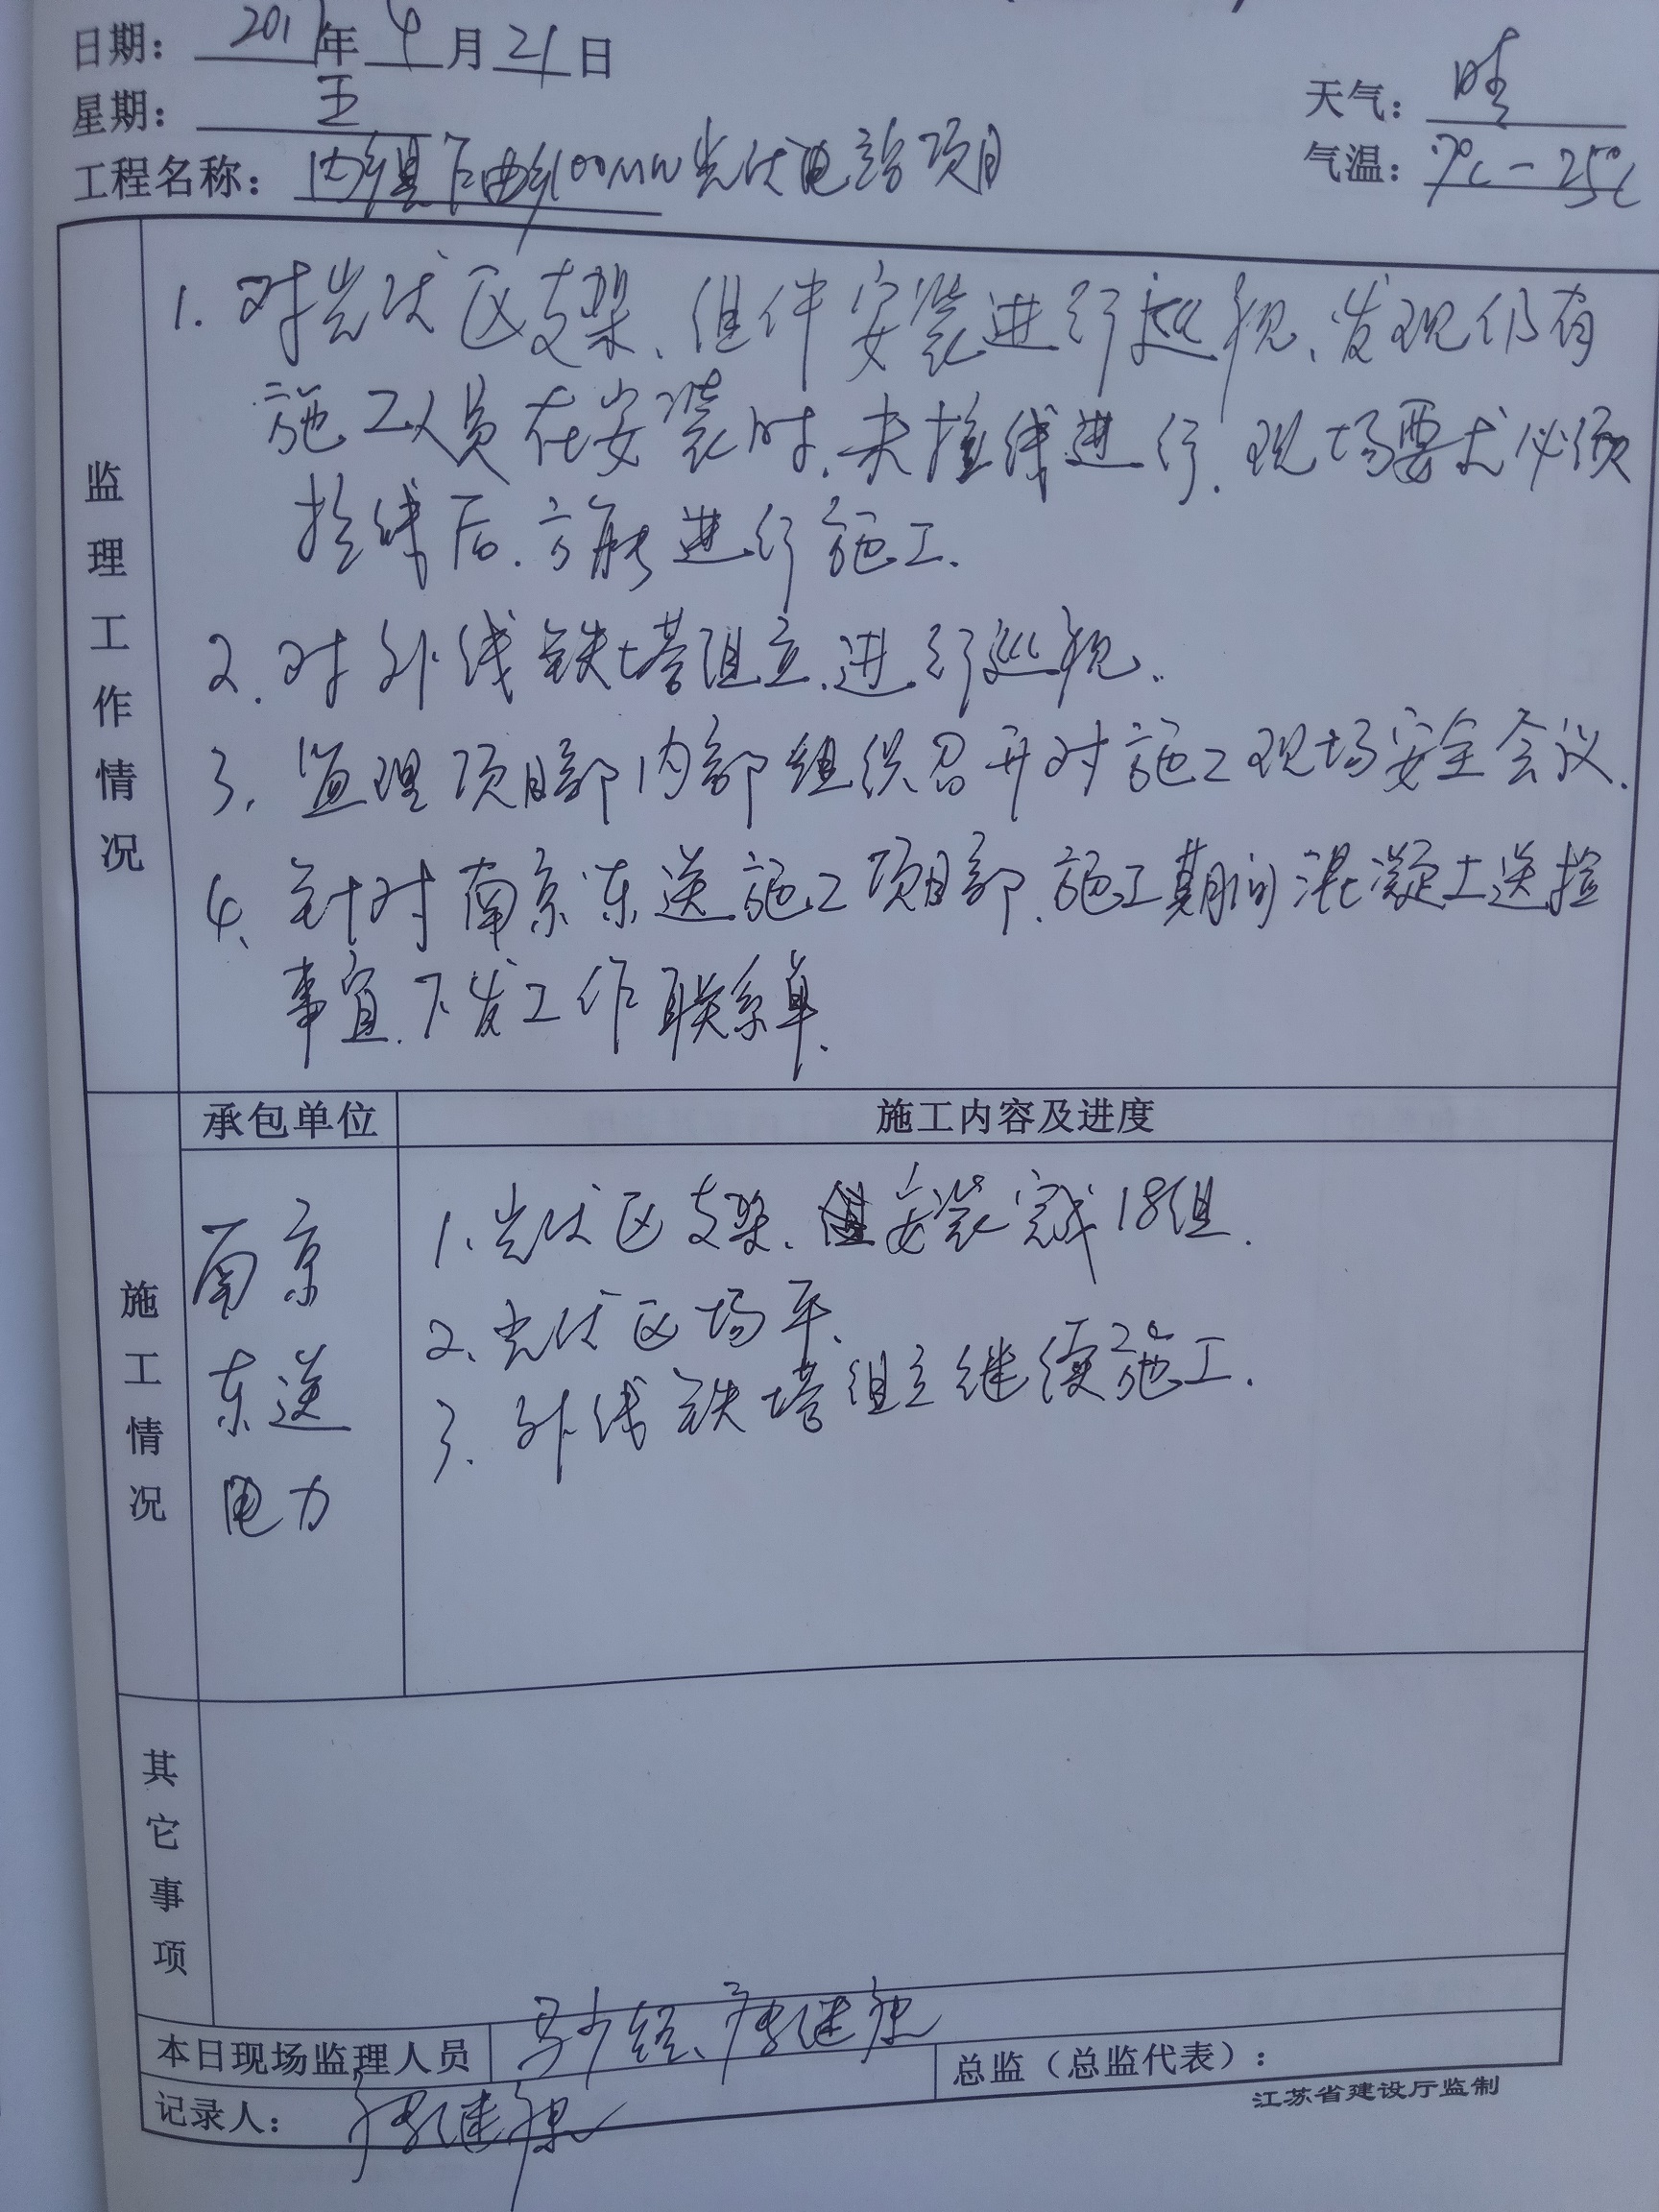 日期: 2017年4月21日
星期: 五
天气: 晴
工程名称: 内乡县下曲乡100MW光伏电站项目
气温: 7℃-25℃
监理工作情况
1. 对光伏区支架、组件安装进行巡视、发现仍有
施工人员在安装时、未拉线进行. 现场要求必须
拉线后. 方能进行施工.
2. 对外线铁塔组立.进行巡视.
3. 监理项目部内部组织召开对施工现场安全会议.
4、针对南京东送施工项目部、施工期间混凝土送检
事宜.下发工作联系单.
承包单位 施工内容及进度
施工情况
南京
东送
电力
1、光伏区支架、安装完成18组.
2、光伏区场平.
3、外线铁塔组立继续施工.
其它事项
本日现场监理人员
总监（总监代表）:
记录人:
江苏省建设厅监制